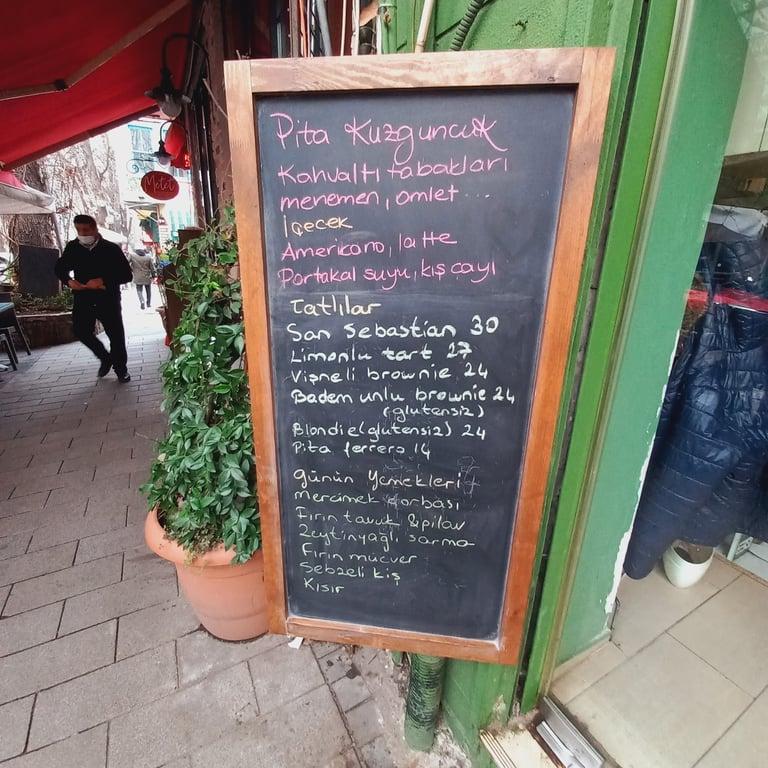 Pita Kuzguncuk
Kahvaltı tabakları
menemen, omlet ...
İçecek
Americano, latte
Portakal suyu, kış çayı
Tatlılar
San Sebastian 30
Limonlu tart 27
Vişneli brownie 24
Badem unlu brownie 24
(glutensiz)
Blondie (glutensiz) 24
Pita ferrero 14
Günün Yemekleri
Mercimek çorbası
Fırın tavuk & pilav
Zeytinyağlı sarma
Fırın mücver
Sebzeli kiş
Kısır
Metet